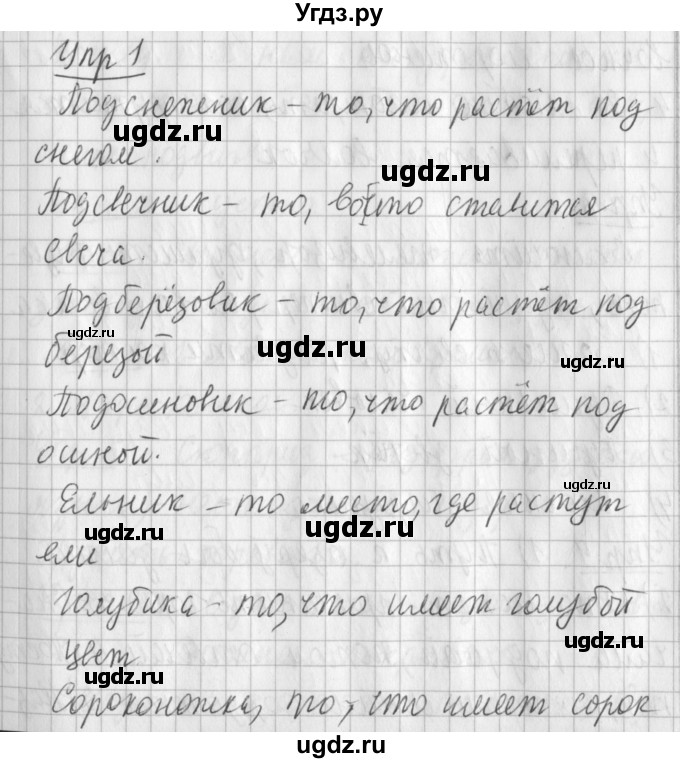 Угдз.ру
Упр 1
Подснежник – то, что растёт под
ugdz.ru
снегом.
ugdz.ru
Подсвечник – то, во что ставится
свеча.
Подберёзовик – то, что растёт под
ugdz.ru
ugdz.ru
ugdz.ru
березой
Подосиновик – то, что растёт под
осиной.
ugdz.ru
Ельник – то место, где растут
ugdz.ru
ugdz.ru
ели
Голубика – то, что имеет голубой
ugdz.ru
цвет
ugdz.ru
Сороконожка, то, что имеет сорок
ugdz.ru